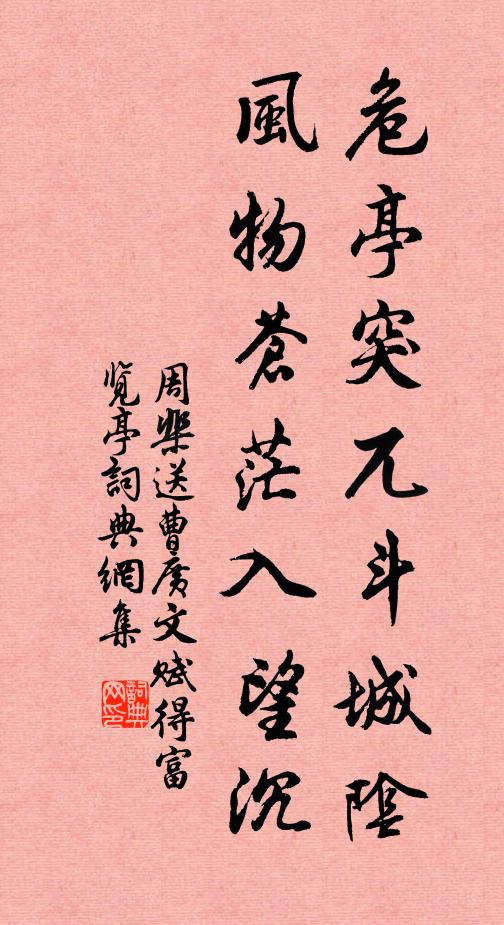 危亭突兀斗城陰
風物蒼茫入望沉
周棐送曹廣文賦得富
览亭詞典網集
詞典网印